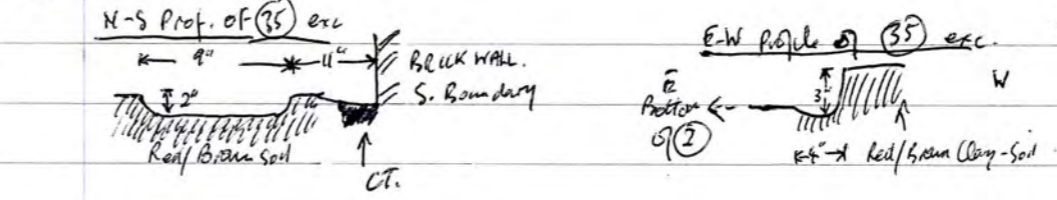 N-S Prof. of 35 exc
9" 4" BRICK WALL.
2" S. Boundary
Red/Brown Soil
CT.
E-W Profile of 35 exc.
E 3" W
Bottom
of 2
4" Red/Brown Clay-Soil